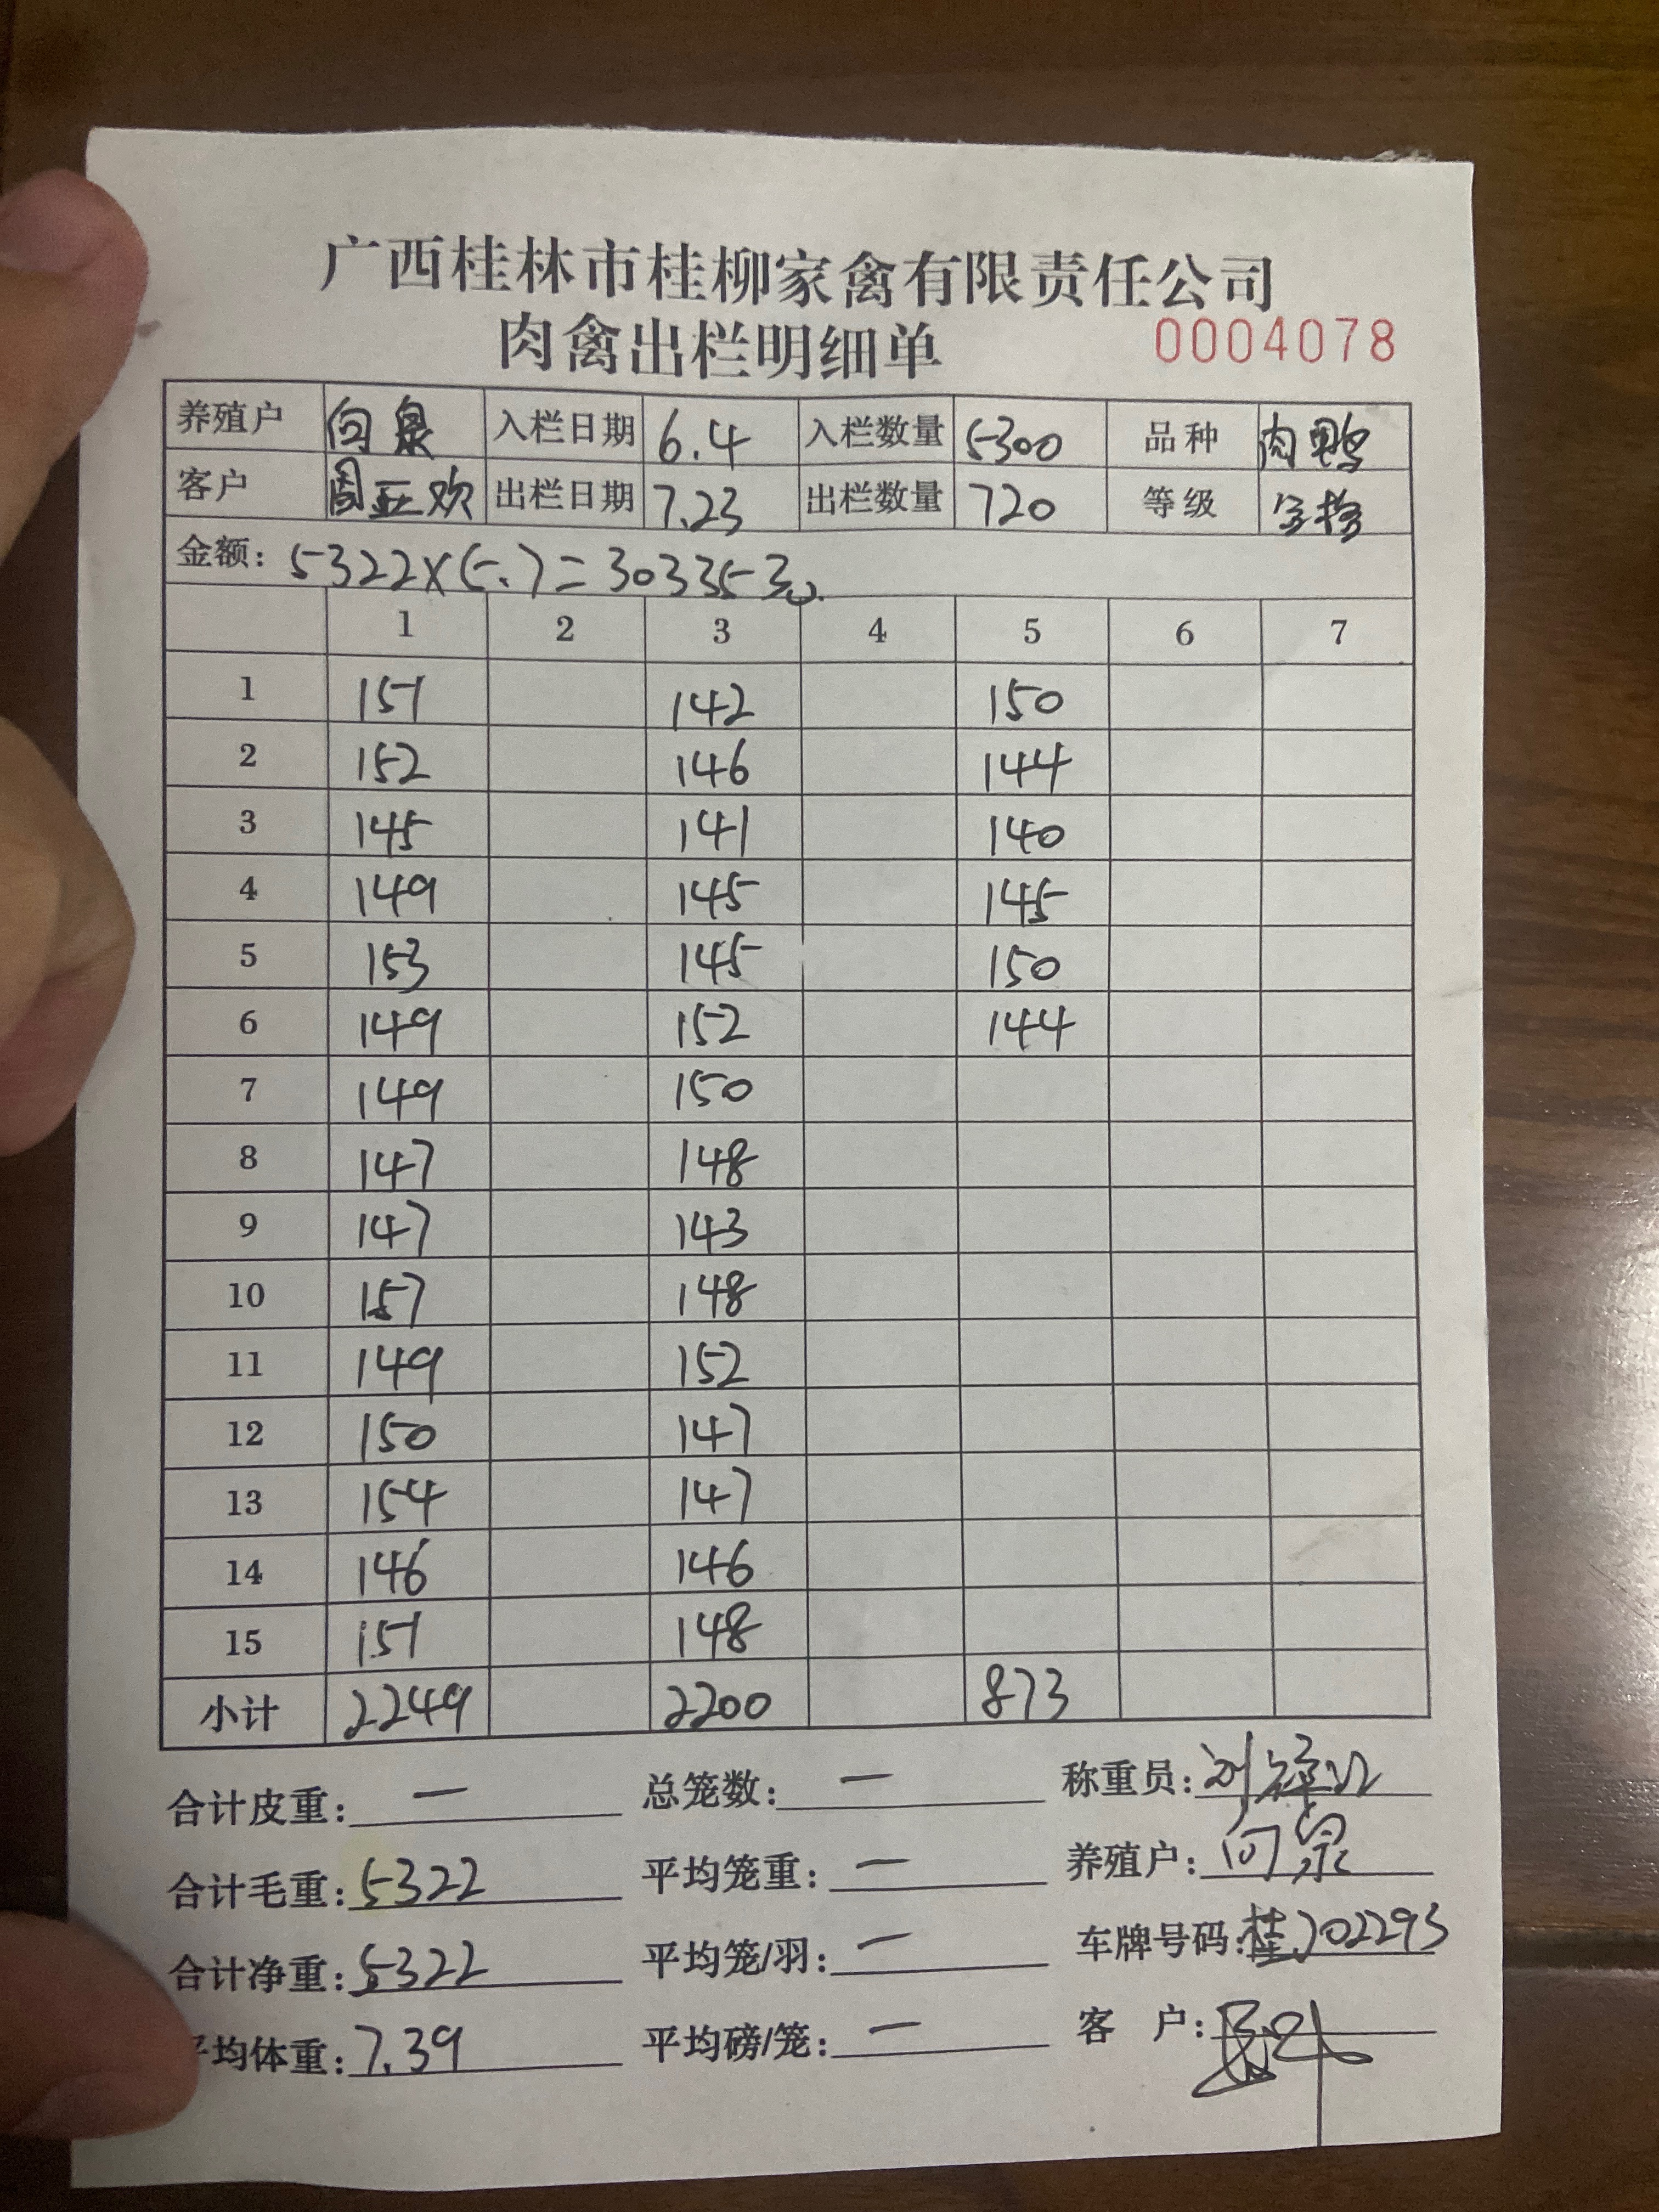 广西桂林市桂柳家禽有限责任公司
肉禽出栏明细单 0004078
养殖户 向泉 入栏日期 6.4 入栏数量 5300 品种 肉鸭
客户 周亚欢 出栏日期 7.23 出栏数量 720 等级
金额: 5322×5.7=30335.30.
1 2 3 4 5 6 7
1 151 142 150
2 152 146 144
3 145 141 140
4 149 145 145
5 153 145 150
6 149 152 144
7 149 150
8 147 148
9 147 143
10 157 148
11 149 152
12 150 147
13 154 147
14 146 146
15 151 148
小计 2249 2200 873
合计皮重: — 总笼数: — 称重员:
合计毛重: 5322 平均笼重: — 养殖户: 向泉
合计净重: 5322 平均笼/羽: — 车牌号码: 桂J02293
平均体重: 7.39 平均磅/笼: — 客 户: